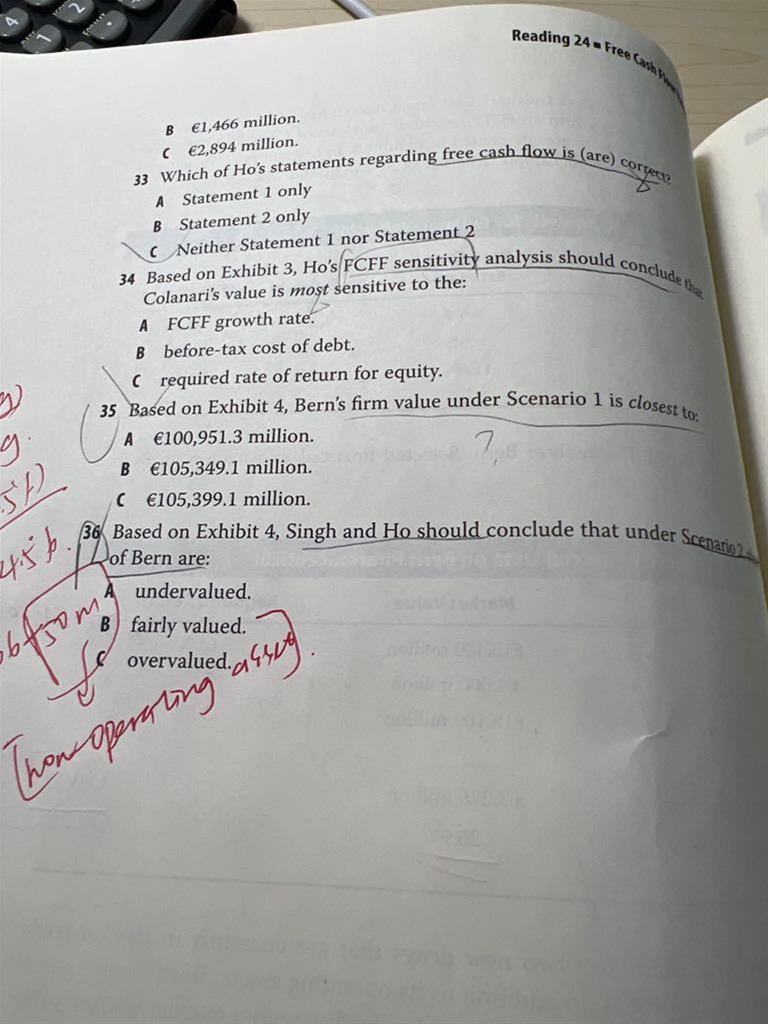 4
2
1
Reading 24 ■ Free Cash Flow
B €1,466 million.
C €2,894 million.
33 Which of Ho's statements regarding free cash flow is (are) correct?
A Statement 1 only
B Statement 2 only
C Neither Statement 1 nor Statement 2
34 Based on Exhibit 3, Ho's FCFF sensitivity analysis should conclude that
Colanari's value is most sensitive to the:
A FCFF growth rate.
B before-tax cost of debt.
C required rate of return for equity.
35 Based on Exhibit 4, Bern's firm value under Scenario 1 is closest to:
A €100,951.3 million.
?
B €105,349.1 million.
C €105,399.1 million.
36 Based on Exhibit 4, Singh and Ho should conclude that under Scenario 2
of Bern are:
A undervalued.
50m
B fairly valued.
C overvalued.
non-operating asset.